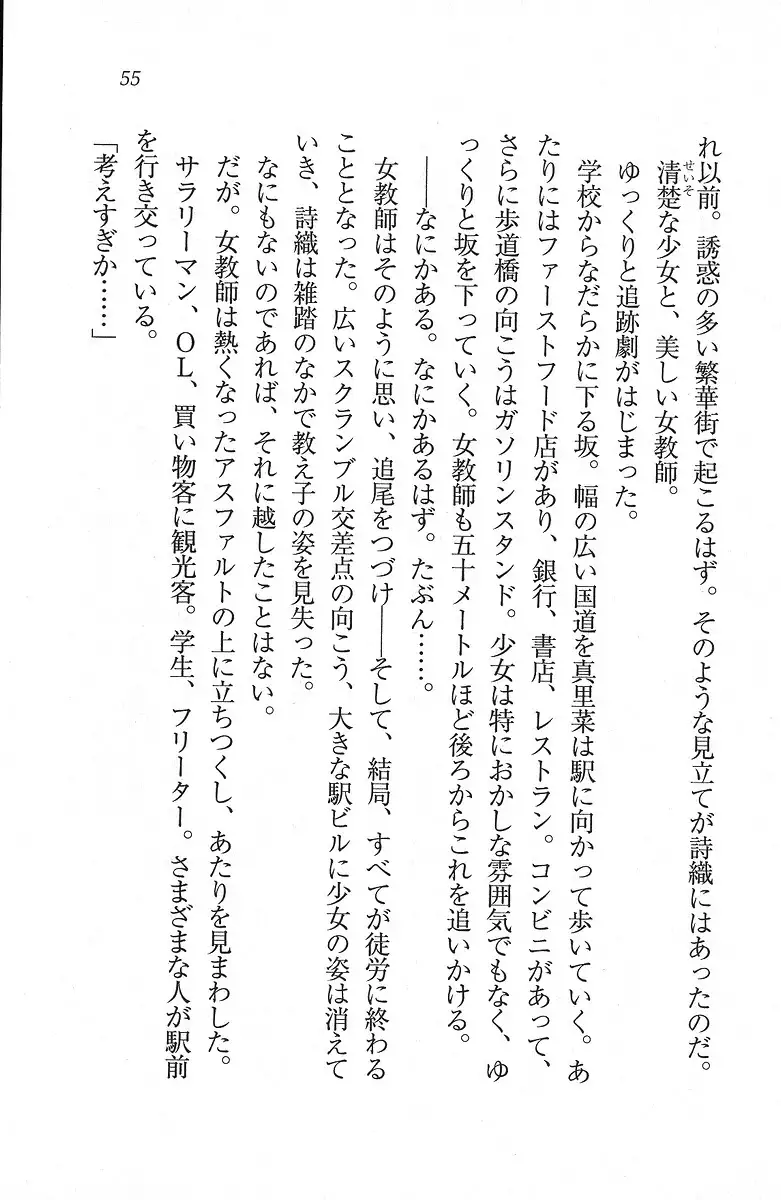 55
れ以前。誘惑の多い繁華街で起こるはず。そのような見立てが詩織にはあったのだ。
清楚な少女と、美しい女教師。
せいそ
ゆっくりと追跡劇がはじまった。
学校からなだらかに下る坂。幅の広い国道を真里菜は駅に向かって歩いていく。あ
たりにはファーストフード店があり、銀行、書店、レストラン。コンビニがあって、
さらに歩道橋の向こうはガソリンスタンド。少女は特におかしな雰囲気でもなく、ゆ
っくりと坂を下っていく。女教師も五十メートルほど後ろからこれを追いかける。
――なにかある。なにかあるはず。たぶん……。
女教師はそのように思い、追尾をつづけ――そして、結局、すべてが徒労に終わる
こととなった。広いスクランブル交差点の向こう、大きな駅ビルに少女の姿は消えて
いき、詩織は雑踏のなかで教え子の姿を見失った。
なにもないのであれば、それに越したことはない。
だが。女教師は熱くなったアスファルトの上に立ちつくし、あたりを見まわした。
サラリーマン、ＯＬ、買い物客に観光客。学生、フリーター。さまざまな人が駅前
を行き交っている。
「考えすぎか……」